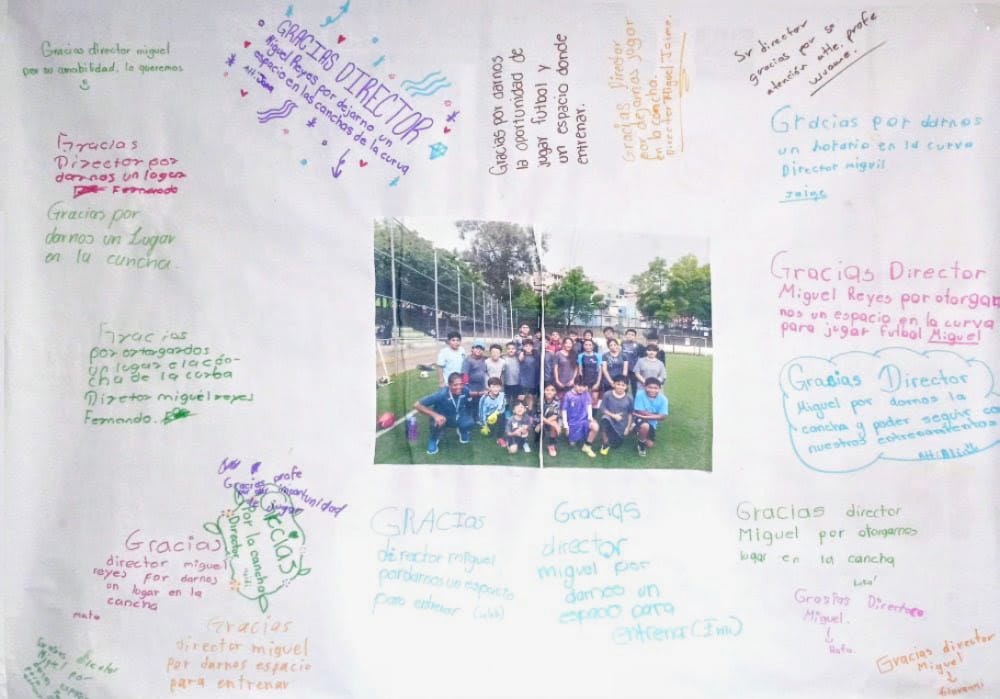 Gracias director miguel
por su amabilidad, lo queremos
GRACIAS DIRECTOR
Miguel Reyes por dejarno un
espacio en las canchas de la curva
Att: 
Gracias por darnos
la oportunidad de
jugar futbol y
un espacio donde
entrenar.
Gracias Director
por dejarnos jugar
en la concha.
Director Miguel Jaime.
Sr director
gracias por su
atención atte. profe
Gracias por darnos
un horario en la curva
Director miguil
Jaime
Gracias
Director por
darnos un logar
Fernando
Gracias por
darnos un Lugar
en la cancha.
Gracias Director
Miguel Reyes por otorgar
nos un espacio en la curva
para jugar Futbol Miguel
Gracias
por otorgardos
un lugar e la co-
cha de la curba
Diretor miguel reyes
Fernando.
Gracias Director
Miguel por darnos la
cancha y poder seguir co
nuestros entrenamientos
Att:
profe
Gracias
de jugar
Gracias
por la cancha
Director
Gracias
director miguel
reyes por darnos
un lugar en la
cancha
mateo
GRACIAS
director miguel
pordarnos un espacio
para entrenar
Gracias
director
miguel por
darnos un
espacio para
entrenar (Imi)
Gracias director
Miguel por otorgarnos
lugar en la cancha
Gracias Director
Miguel.
Rafa.
Gracias
director miguel
por darnos espacio
para entrenar
director
Miguel por
Gracias director
Miguel
Giovanni